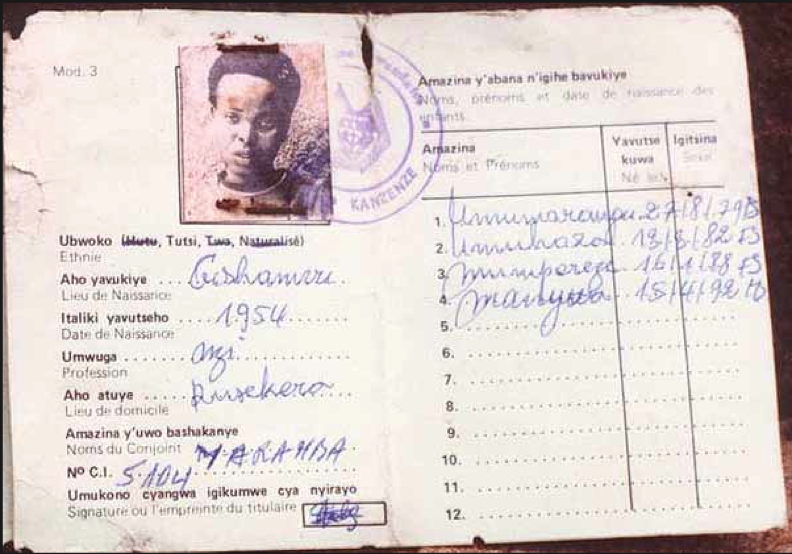 Mod. 3
KANZENZE
Ubwoko (Hutu, Tutsi, Twa, Naturalisé)
Ethnie
Aho yavukiye .... Gishamvu
Lieu de Naissance
Italiki yavutseho .... 1954
Date de Naissance
Umwuga ....
Profession
Aho atuye ....
Lieu de domicile
Amazina y'uwo bashakanye
Noms du Conjoint MARAMBA
Nº C.I. 5104
Umukono cyangwa igikumwe cya nyirayo
Signature ou l'empreinte du titulaire
Amazina y'abana n'igihe bavukiye
Noms, prénoms et date de naissance des
enfants
Amazina Yavutse kuwa Igitsina
Noms et Prénoms Né le Sexe
1. 27/8/79
2. 13/3/82
3. 16/1/88
4. 15/4/92
5.
6.
7.
8.
9.
10.
11.
12.